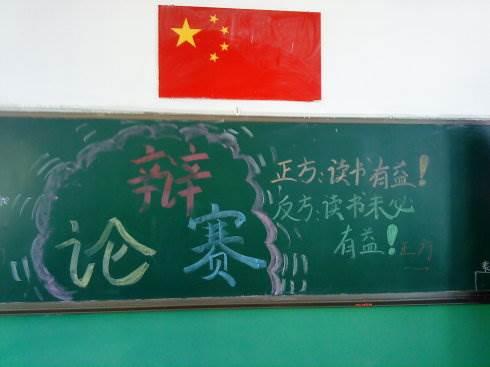 辩
论赛
正方:读书有益!
反方:读书未必
有益!